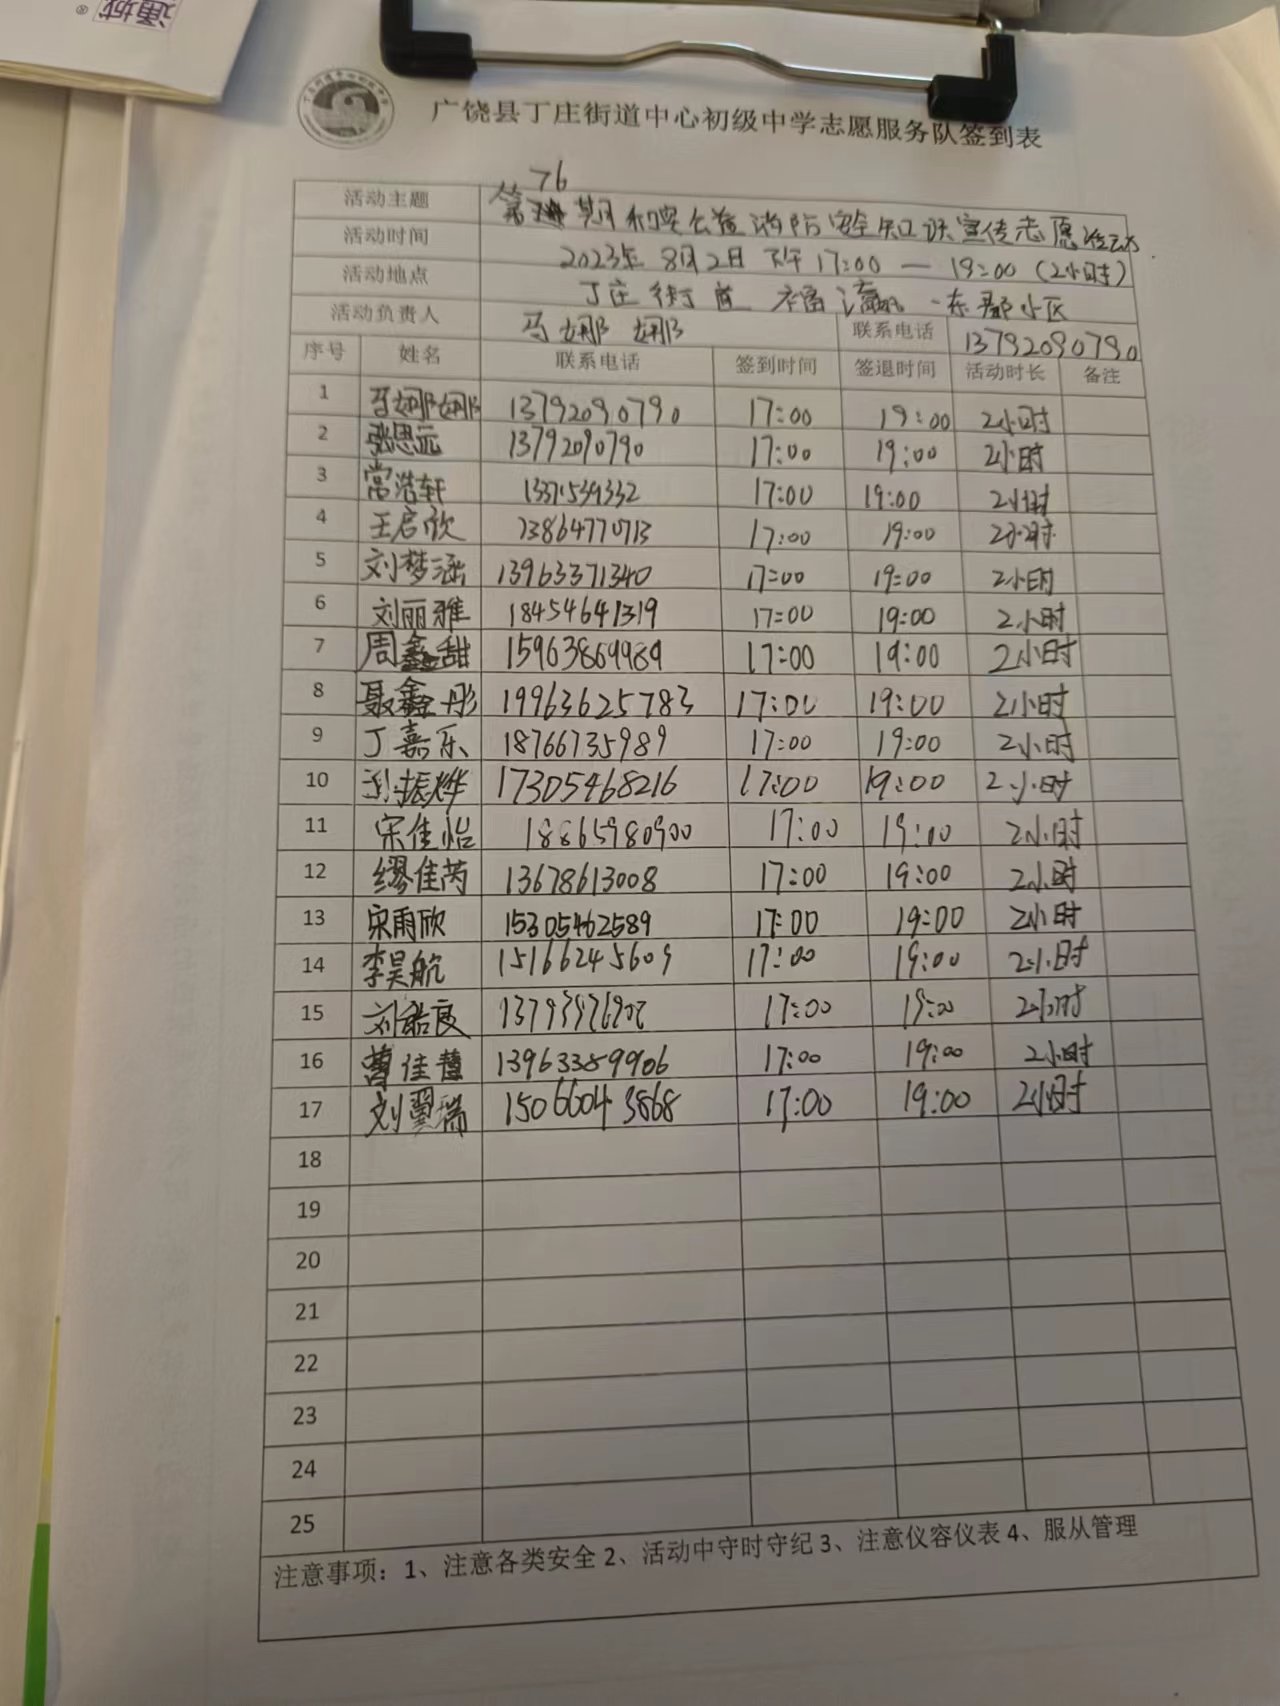 通城
®
广饶县丁庄街道中心初级中学志愿服务队签到表
活动主题 第76期 和安公益消防安全知识宣传志愿活动
活动时间 2023年8月2日 下午17:00—19:00(2小时)
活动地点 丁庄街道 东郡小区
活动负责人 马娜娜 联系电话 13792090790
序号 姓名 联系电话 签到时间 签退时间 活动时长 备注
1 马娜娜 13792090790 17:00 19:00 2小时
2 张思远 13792090790 17:00 19:00 2小时
3 常浩轩 17:00 19:00 2小时
4 王启欣 13864770713 17:00 19:00 2小时
5 刘梦涵 13963371340 17:00 19:00 2小时
6 刘丽雅 18454641319 17:00 19:00 2小时
7 周鑫甜 15963869989 17:00 19:00 2小时
8 聂鑫彤 19963625783 17:00 19:00 2小时
9 丁嘉乐 18766735989 17:00 19:00 2小时
10 振烨 17305468216 17:00 19:00 2小时
11 宋佳怡 18865980900 17:00 19:00 2小时
12 缪佳芮 13678613008 17:00 19:00 2小时
13 宋雨欣 15305462589 17:00 19:00 2小时
14 李昊航 15166245609 17:00 19:00 2小时
15 刘 17:00 19:00 2小时
16 曹佳慧 13963359906 17:00 19:00 2小时
17 刘翼瑞 15066043868 17:00 19:00 2小时
18
19
20
21
22
23
24
25
注意事项：1、注意各类安全 2、活动中守时守纪 3、注意仪容仪表 4、服从管理